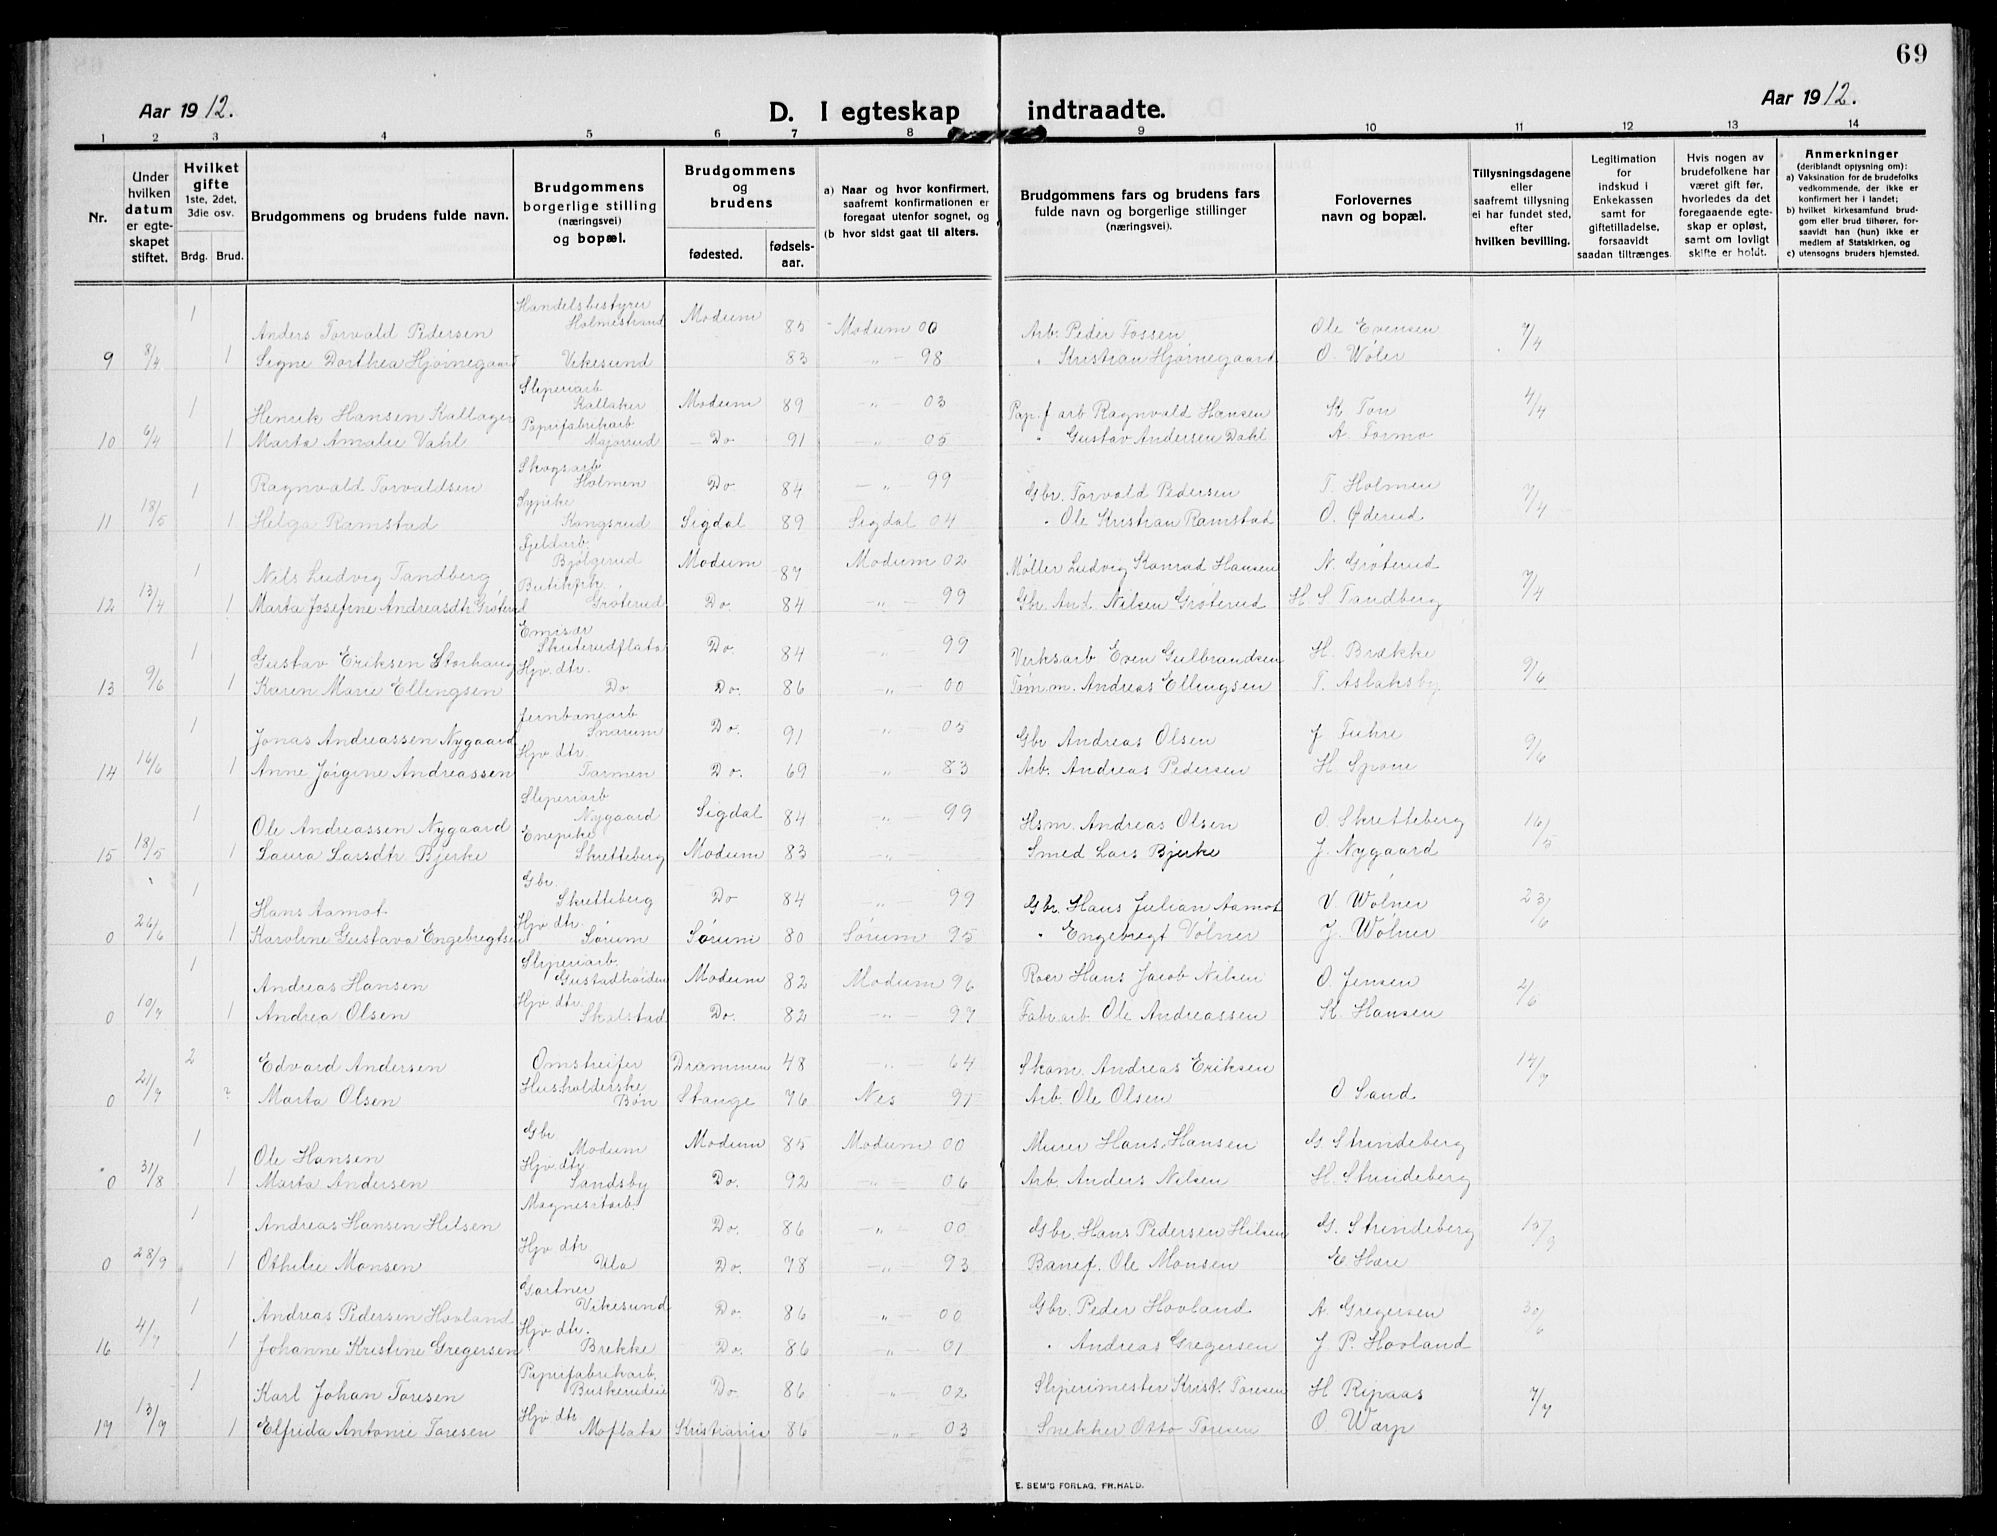 69
Aar 1912.
D. I egteskap indtraadte.
Aar 1912.
1 2 3 4 5 6 7 8 9 10 11 12 13 14
Nr.
Under hvilken datum er egte-skapet stiftet.
Hvilket gifte 1ste, 2det, 3die osv.
Brdg. Brud.
Brudgommens og brudens fulde navn.
Brudgommens borgerlige stilling (næringsvei) og bopæl.
Brudgommens og brudens
fødested. fødsels-aar.
a) Naar og hvor konfirmert, saafremt konfirmationen er foregaat utenfor sognet, og
(b hvor sidst gaat til alters.
Brudgommens fars og brudens fars fulde navn og borgerlige stillinger (næringsvei).
Forlovernes navn og bopæl.
Tillysningsdagene eller saafremt tillysning ei har fundet sted, efter hvilken bevilling.
Legitimation for indskud i Enkekassen samt for giftetilladelse, forsaavidt saadan tiltrænges.
Hvis nogen av brudefolkene har været gift før, hvorledes da det foregaaende egte-skap er opløst, samt om lovligt skifte er holdt.
Anmerkninger
(deriblandt oplysning om):
a) Vaksination for de brudefolks vedkommende, der ikke er konfirmert her i landet;
b) hvilket kirkesamfund brud-gom eller brud tilhører, for-saavidt han (hun) ikke er medlem af Statskirken, og
c) utensogns bruders hjemsted.
1 Anders Torvald Pedersen Handelsbestyrer Holmestrand Modum 85 Modum 00 Arb. Peder Fossen Ole Evensen 7/4
9 8/4 1 Signe Dorthea Hjørnegaard Vikesund 83 " - 98 " Kristian Hjørnegaard O. Wøler
1 Henrik Hansen Kallager Sliperiarb Kallaker Modum 89 - " - 03 Pap.f arb Ragnvald Hansen K Ton 4/4
10 6/4 1 Marta Amalie Dahl Papirfabrikarb Majorrud Do 91 " 05 " Gustav Andersen Dahl A. Formo
1 Ragnvald Torvaldsen Skogsarb Holmen Do. 84 - " - 99 Gbr. Torvald Pedersen T. Holmen 7/4
11 18/5 1 Helga Ramstad Sypike Kongsrud Sigdal 89 Sigdal 04 " Ole Kristian Ramstad O. Øderud
1 Nils Ludvig Tandberg Fjeldarb. Bjølgerud Modum 87 Modum 02 Møller Ludvig Konrad Hansen N. Grøterud 7/4
12 13/4 1 Marta Josefine Andreasdtr Grøterud Grøterud Do. 84 - " - 99 Gbr. And. Nilsen Grøterud H S Tandberg
1 Gustav Eriksen Storhaug Emisær Skuterudflata Do 84 - " - 99 Verksarb Even Gulbrandsen H. Brække 9/6
13 9/6 1 Karen Marie Ellingsen Hjv dtr. Do. Do. 86 - " - 00 Tøm.m. Andreas Ellingsen T. Aslaksby
1 Jonas Andreassen Nygaard Jernbanearb Snarum Do. 91 - " - 05 Gbr Andreas Olsen J Fuhre 9/6
14 16/6 1 Anne Jørgine Andreassen Hjv dtr. Do. 69 " 83 Arb. Andreas Pedersen H. Spone
1 Ole Andreassen Nygaard Sliperiarb Nygaard Sigdal 84 - " - 99 Hsm. Andreas Olsen O. Skretteberg 16/5
15 18/5 1 Laura Larsdtr Bjerke Enepike Skretteberg Modum 83 - " - Smed Lars Bjerke J. Nygaard
1 Hans Aamot Gbr. Skretteberg Do 84 - " - 99 Gbr. Hans Julian Aamot V. Wølner 23/6
0 26/6 1 Karoline Gustava Engebregtsen Hjv dtr Sørum Sørum 80 Sørum 95 " Engebregt Vølner J. Wølner
1 Andreas Hansen Sliperiarb. Modum 82 Modum 96 Roer Hans Jacob Nilsen O. Jensen 2/6
0 10/7 1 Andrea Olsen Hjv dtr. Skalstad Do. 82 - " - 97 Fabr arb Ole Andreassen K. Hansen
2 Edvard Andersen Omstreifer Drammen 48 - " - 64 Skom. Andreas Eriksen 14/7
0 21/7 ? Marta Olsen Husholderske Bøn Stange 76 Nes 91 Arb. Ole Olsen O Sand
1 Ole Hansen Gbr Modum Modum 85 Modum 00 Murer Hans Hansen G Strindeberg
0 31/8 1 Marta Andersen Hjv dtr. Sandsby Do. 92 - " - 06 Arb. Anders Nilsen H. Strindeberg
1 Andreas Hansen Hilsen Magnesitarb. Do. 86 - " - 00 Gbr. Hans Pedersen Hilsen G. Strindeberg 15/9
0 28/9 1 Othilie Monsen Hjv dtr Ula Do. 78 - " - 93 Banef. Ole Monsen E Hære
1 Andreas Pedersen Hovland Gartner Vikesund Do. 86 - " - 00 Gbr. Peder Hovland A. Gregersen 30/6
16 4/7 1 Johanne Kristine Gregersen Hjv dtr. Brekke Do. 86 - " - 01 " Andreas Gregersen J P. Hovland
1 Karl Johan Toresen Papirfabrikarb. Buskerudeie Do. 86 - " - 02 Sliperimester Krist. Toresen H Ripaas 7/7
17 13/9 1 Elfrida Antonie Toresen Hjv dtr Moflata Kristiania 86 - " - 03 Snekker Otto Toresen O. Warp
E. SEM'S FORLAG, FR.HALD.